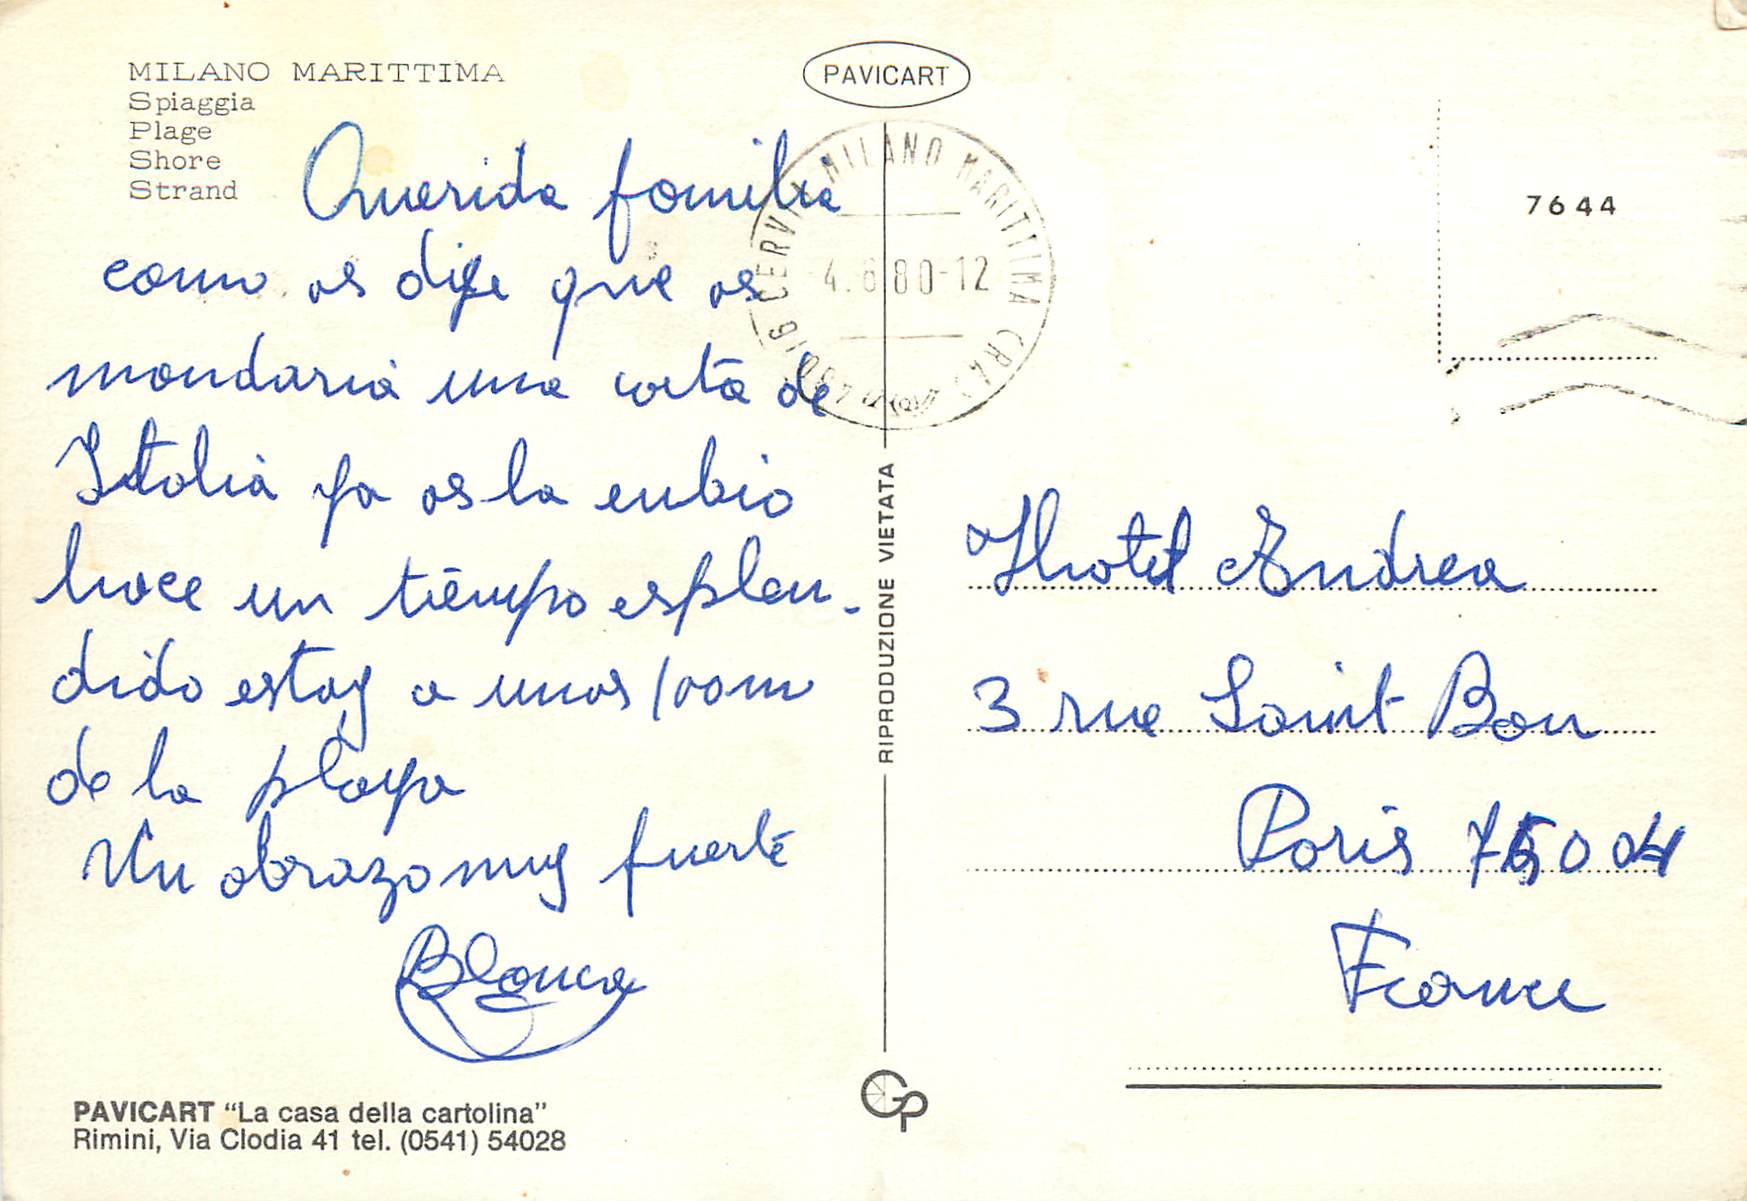 MILANO MARITTIMA
Spiaggia
Plage
Shore
Strand
PAVICART
Querida familia
como os dije que os
mandaria una carta de
Italia ya os la enbio
hace un tiempo esplen-
dido estoy a unos 100m
de la playa
Un abrazo muy fuerte
Blanca
PAVICART "La casa della cartolina"
Rimini, Via Clodia 41 tel. (0541) 54028
RIPRODUZIONE VIETATA
48016 CERVIA MILANO MARITTIMA (RA)
4.6.80-12
7644
Hotel Andrea
3 rue Saint Bon
Paris 75004
France
GP